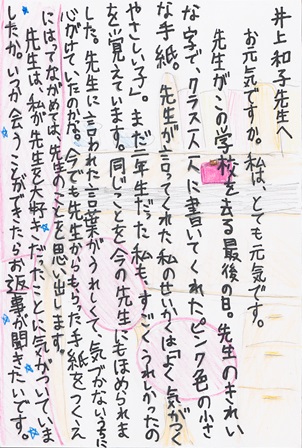 井上和子先生へ
お元気ですか。私は、とても元気です。
先生がこの学校を去る最後の日。先生のきれい
な字で、クラス一人一人に書いてくれたピンク色の小さ
な手紙。先生が言ってくれた私のせいかくは「よく気がつく
やさしい子」。まだ二年生だった私も、すごくうれしかったの
を覚えています。同じことを今の先生にもほめられま
した。先生に言われた言葉がうれしくて、気づかないうちに
心がけていたのかな。今でも先生からもらった手紙をつくえ
にはってながめては、先生のことを思い出します。
先生は、私が先生を大好きだったことに気がついていま
したか。いつか会うことができたらお返事が聞きたいです。